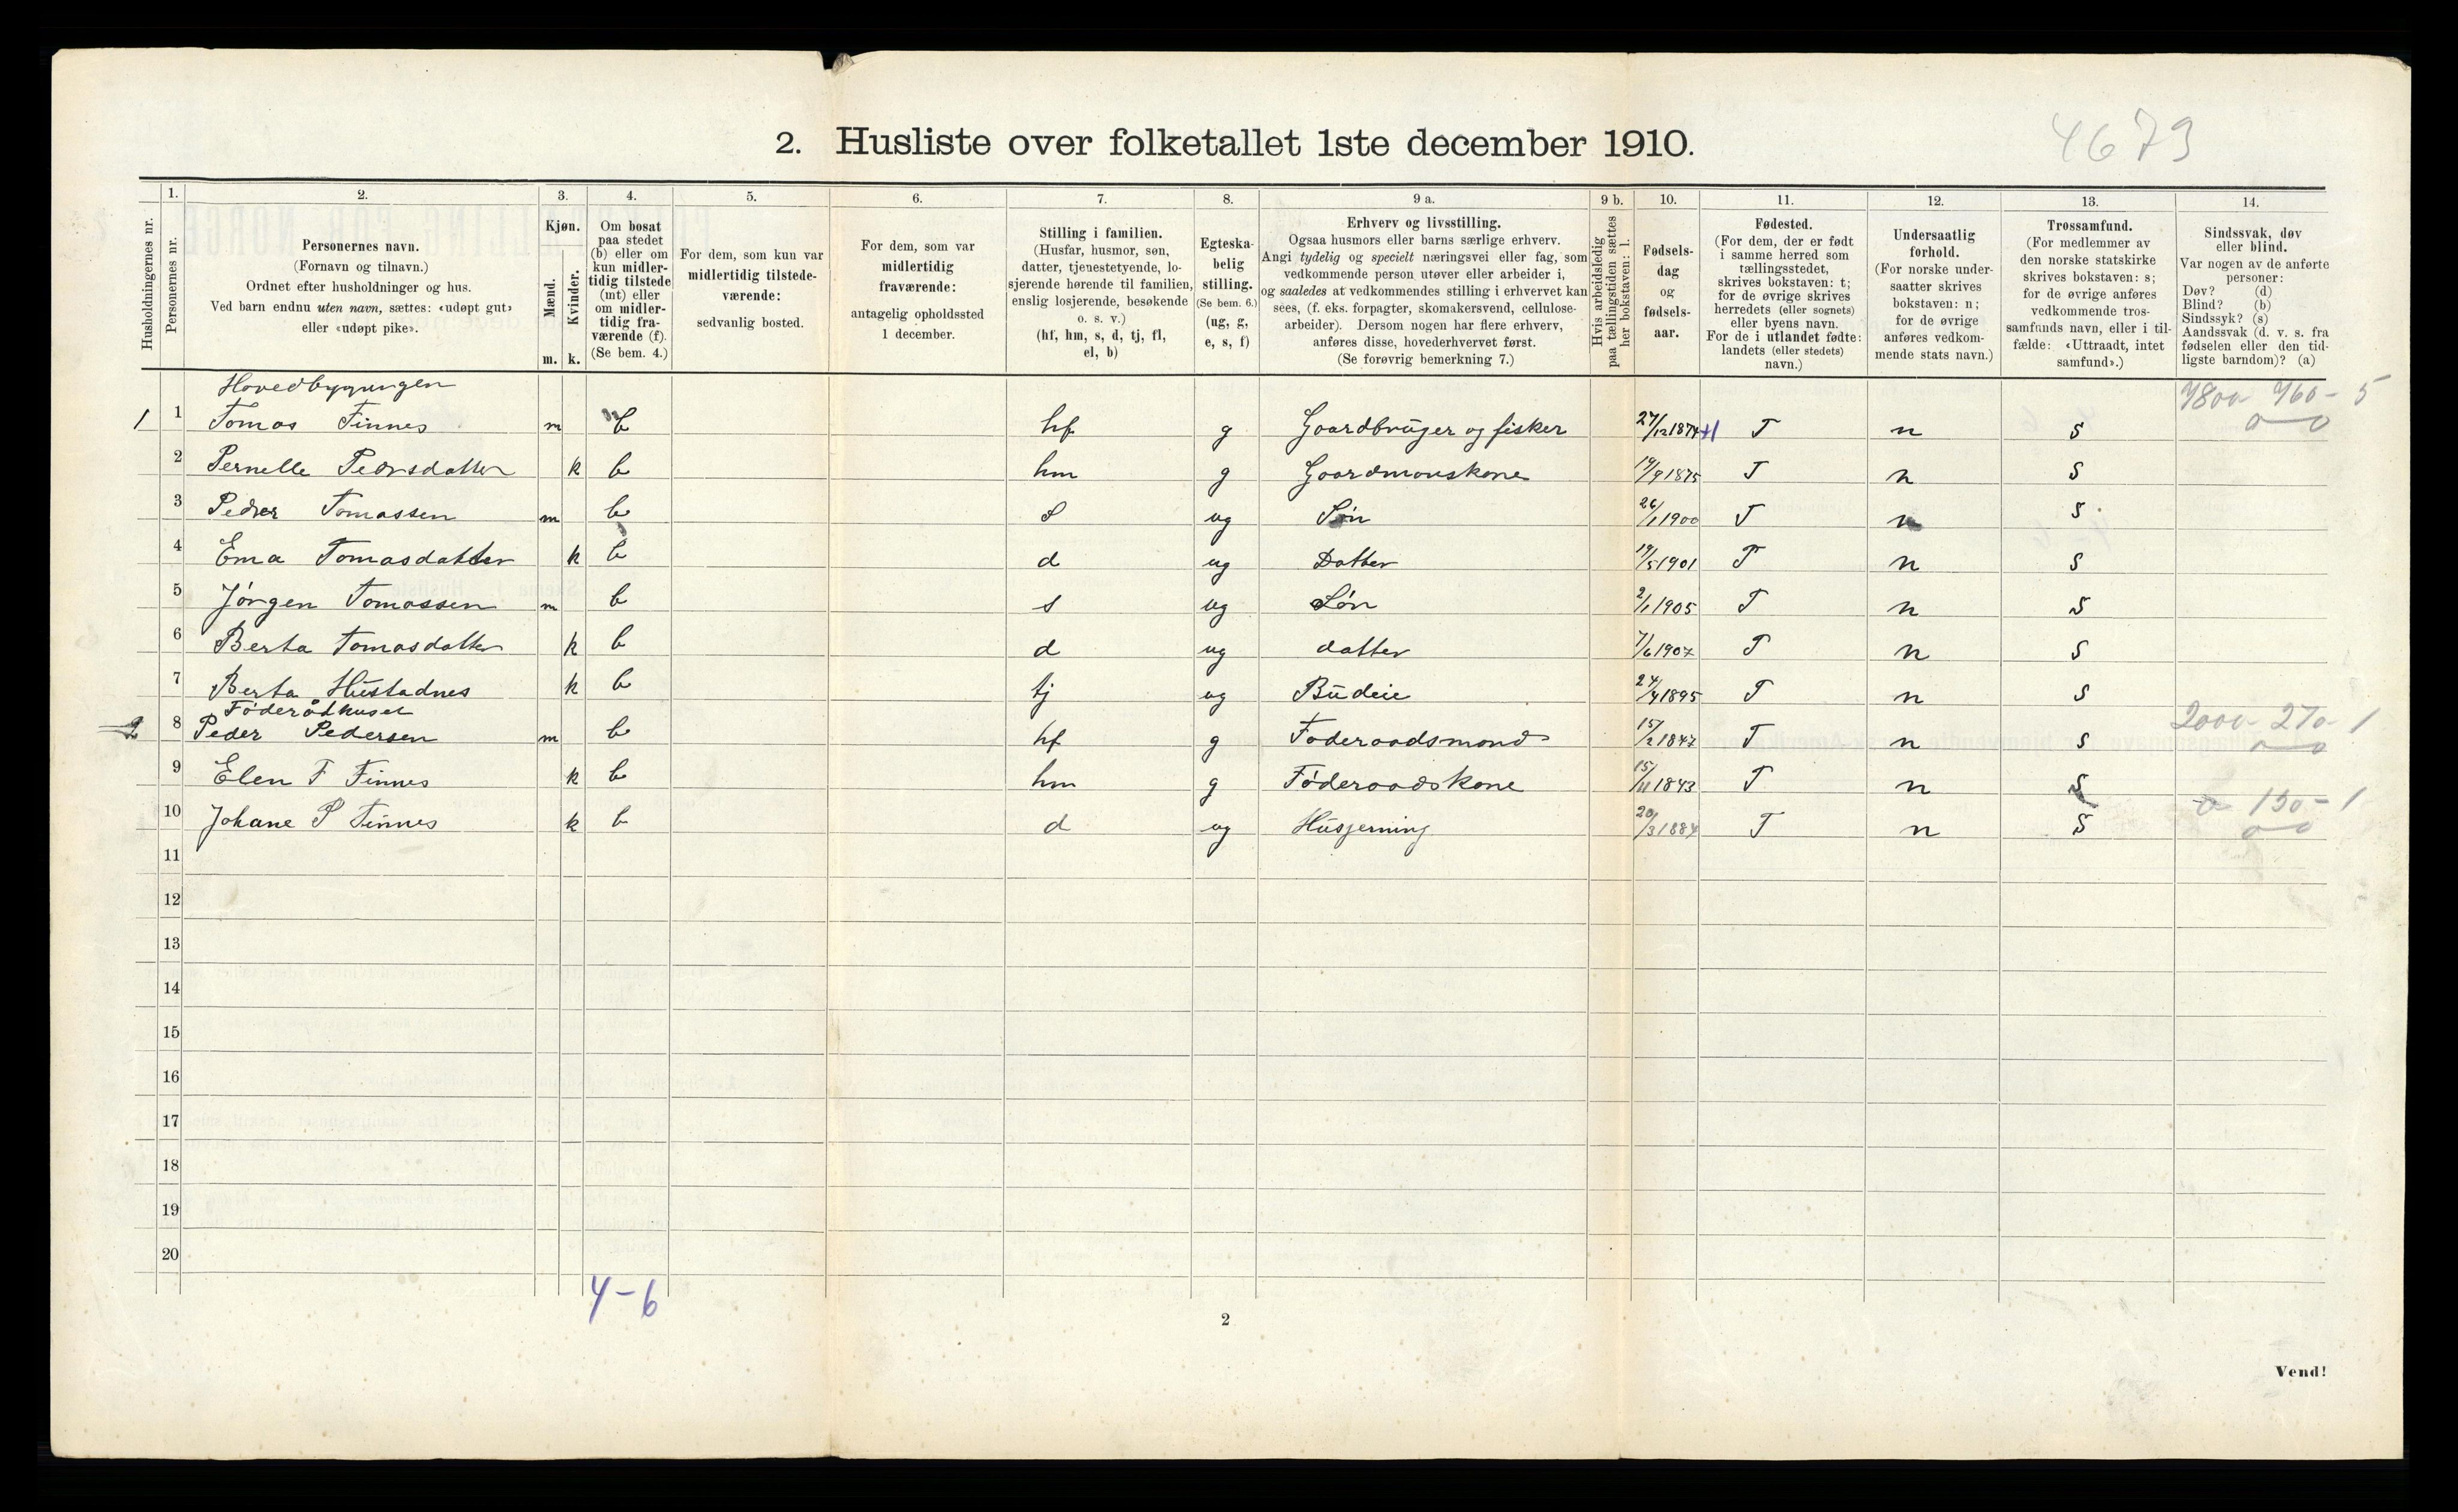 4673
2. Husliste over folketallet 1ste december 1910.
Husholdningernes nr.
1.
Personernes nr.
2.
Personernes navn.
(Fornavn og tilnavn.)
Ordnet efter husholdninger og hus.
Ved barn endnu uten navn, sættes: «udøpt gut»
eller «udøpt pike».
3.
Kjøn.
Mænd.
Kvinder.
m. k.
4.
Om bosat
paa stedet
(b) eller om
kun midler-
tidig tilstede
(mt) eller
om midler-
tidig fra-
værende (f).
(Se bem. 4.)
5.
For dem, som kun var
midlertidig tilstede-
værende:
sedvanlig bosted.
6.
For dem, som var
midlertidig
fraværende:
antagelig opholdssted
1 december.
7.
Stilling i familien.
(Husfar, husmor, søn,
datter, tjenestetyende, lo-
sjerende hørende til familien,
enslig losjerende, besøkende
o. s. v.)
(hf, hm, s, d, tj, fl,
el, b)
8.
Egteska-
belig
stilling.
(Se bem. 6.)
(ug, g,
e, s, f)
9 a.
Erhverv og livsstilling.
Ogsaa husmors eller barns særlige erhverv.
Angi tydelig og specielt næringsvei eller fag, som
vedkommende person utøver eller arbeider i,
og saaledes at vedkommendes stilling i erhvervet kan
sees, (f. eks. forpagter, skomakersvend, cellulose-
arbeider). Dersom nogen har flere erhverv,
anføres disse, hovederhvervet først.
(Se forøvrig bemerkning 7.)
9 b.
Hvis arbeidsledig
paa tællingstiden sættes
her bokstaven: l.
10.
Fødsels-
dag
og
fødsels-
aar.
11.
Fødested.
(For dem, der er født
i samme herred som
tællingsstedet,
skrives bokstaven: t;
for de øvrige skrives
herredets (eller sognets)
eller byens navn.
For de i utlandet fødte:
landets (eller stedets)
navn.)
12.
Undersaatlig
forhold.
(For norske under-
saatter skrives
bokstaven: n;
for de øvrige
anføres vedkom-
mende stats navn.)
13.
Trossamfund.
(For medlemmer av
den norske statskirke
skrives bokstaven: s;
for de øvrige anføres
vedkommende tros-
samfunds navn, eller i til-
fælde: «Uttraadt, intet
samfund».)
14.
Sindssvak, døv
eller blind.
Var nogen av de anførte
personer:
Døv? (d)
Blind? (b)
Sindssyk? (s)
Aandssvak (d. v. s. fra
fødselen eller den tid-
ligste barndom)? (a)
Hovedbygningen
1 1 Tomas Finnes m b hf g Gaardbruger og fisker 27/12 1874 T n s
2 Pernelle Pedersdatter k b hm g Gaardmanskone 19/9 1875 T n s
3 Peder Tomassen m b s ug Søn 26/1 1900 T n s
4 Ema Tomasdatter k b d ug Datter 19/5 1901 T n s
5 Jørgen Tomassen m b s ug Søn 2/1 1905 T n s
6 Berta Tomasdatter k b d ug datter 7/6 1907 T n s
7 Berta Hustadnes k b tj ug Büdeie 24/4 1895 T n s
Føderådhuset
2 8 Peder Pedersen m b hf g Føderaadsmand 15/2 1847 T n s 2000 - 270 - 1
9 Elen F Finnes k b hm g Føderaadskone 15/11 1843 T n s
10 Johane P Finnes k b d ug Husgerning 20/3 1884 T n s 0 150 - 1
11
12
13
14
15
16
17
18
19
20
4-6
2
Vend!